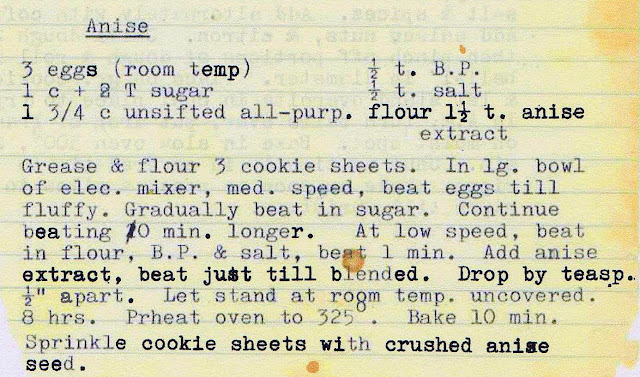 Anise
3 eggs (room temp) ½ t. B.P.
1 c + 2 T sugar ½ t. salt
1 3/4 c unsifted all-purp. flour 1½ t. anise
extract
Grease & flour 3 cookie sheets. In lg. bowl
of elec. mixer, med. speed, beat eggs till
fluffy. Gradually beat in sugar. Continue
beating 10 min. longer. At low speed, beat
in flour, B.P. & salt, beat 1 min. Add anise
extract, beat just till blended. Drop by teasp.
½" apart. Let stand at room temp. uncovered.
8 hrs. Prheat oven to 325°. Bake 10 min.
Sprinkle cookie sheets with crushed anise
seed.